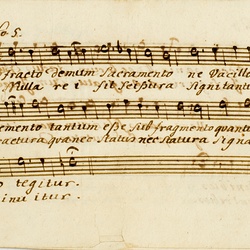 No 5.
fracto demum Sacramento ne Vacille
Nulla rei fit scissura Signitantu
emento tantum esse sub fragmento quantu
ractura qua nec Status nec Statura Signa
tegitur.
inuitur.